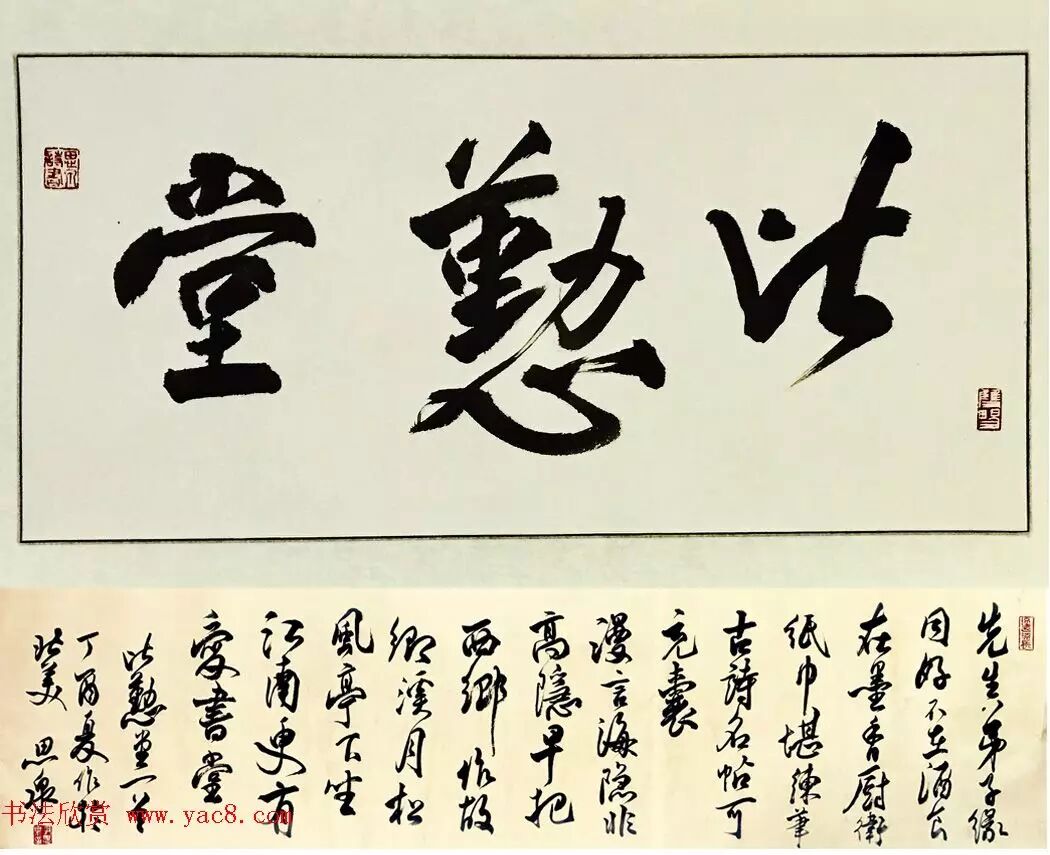 比懃堂
先生弟子緣
同好不在酒食
在墨香厨衛
紙巾堪練筆
古詩名帖可
充囊
漫言海隐非
高隱早把
西鄉作故
鄉溪月松
風亭下坐
江南更有
愛書堂
比懃堂一首
丁酉夏作於
比美 思泉
书法欣赏 www.yac8.com